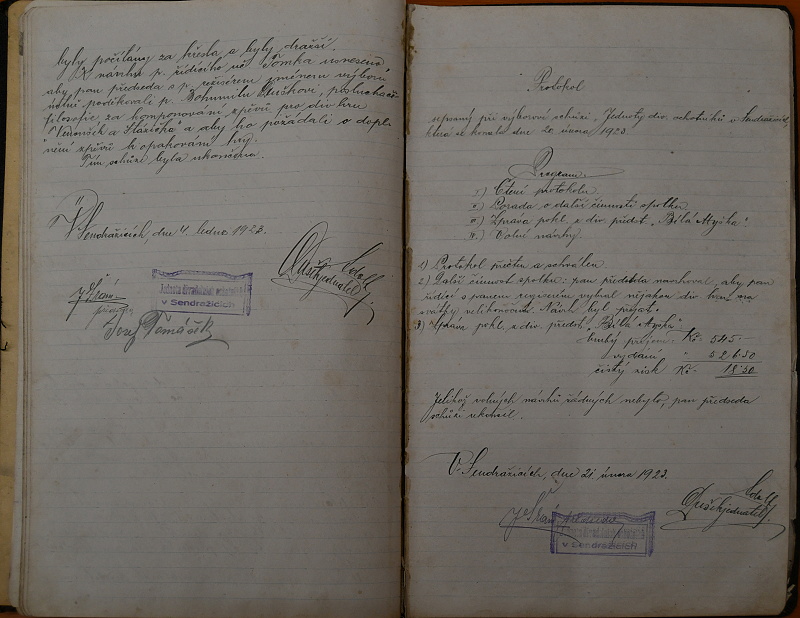 byly počítány za křesla a byly dražší.
Z návrhu p. řídícího uč. Tomka usneseno
aby pan předseda s p. režisérem jménem výboru
ústně poděkovali p. Bohumilu Duškovi, posluchači
filosofie za komponování zpěvů pro div. hru
a aby ho požádali o dopl-
nění zpěvů k opakování hry.
Tím schůze byla ukončena.
V Sendražicích, dne 4. ledna 1923.
Jednota divadelních ochotníků
v Sendražicích
Dušek
jednatel
Josef Tomášek
Protokol
sepsaný při výborové schůzi "Jednoty div. ochotníků v Sendražicích,
která se konala dne 20. února 1923
Program.
I.) Čtení protokolu
II.) Porada o další činnosti spolku
III.) Zpráva pokl. z div. předst. "Bílá Myška"
IV.) Volné návrhy
1) Protokol přečten a schválen
2) Další činnost spolku: pan předseda navrhoval, aby pan
řídící s panem režisérem vybral nějakou div. hru na
svátky velikonoční. Návrh byl přijat.
3) Zpráva pokl. z div. předst. "Bílá Myška"
hrubý příjem Kč 545·-
vydání " 526·50
čistý zisk Kč 18·50
Jelikož volných návrhů žádných nebylo, pan předseda
schůzi ukončil.
V Sendražicích, dne 21. února 1923.
předseda
v Sendražicích
Dušek
jednatel